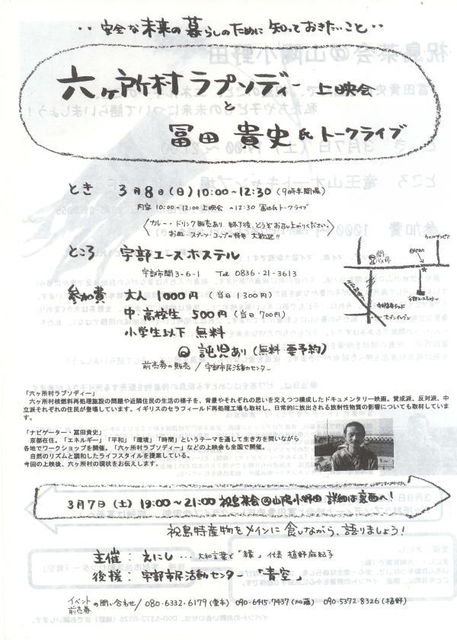 ‥安全な未来の暮らしのために知っておきたいこと‥
六ヶ所村ラプソディー 上映会
と
冨田 貴史氏トークライブ
とき 3月8日(日)10:00~12:30(9時半開場)
内容 10:00~12:00上映会 ~12:30 冨田氏トークライブ
ところ 宇部ユースホステル
宇部市開3-6-1 Tel 0836-21-3613
参加費 大人 1000円(当日1300円)
中・高校生 500円(当日700円)
小学生以下 無料
託児あり(無料 要予約)
前売券の販売/宇部市民活動センター
「六ヶ所村ラプソディー」
六ヶ所村核燃料再処理施設の問題や近隣住民の生活の様子を、背景やそれぞれの思いを交えつつ構成したドキュメンタリー映画。賛成派、反対派、中
立派それぞれの住民が登場しています。イギリスのセラフィールド再処理工場も取材し、日常的に放出される放射性物質の影響についても取材していま
す。
「ナビゲーター・冨田貴史」
京都在住。「エネルギー」「平和」「環境」「時間」というテーマを通して生き方を問いながら
各地でワークショップを開催。「六ヶ所村ラプソディー」などの上映会も全国で開催。
自然のリズムと調和したライフスタイルを提案している。
今回の上映後、六ヶ所村の現状をお伝えします。
3月7日(土) 19:00~21:00 祝島茶会@山陽小野田 詳細は裏面へ!
祝島特産物をメインに食しながら、語りましょう!
主催:えにし
後援:宇部市民活動センター「青空」
イベント
前売券 の問い合わせ/080-6332-6179 090-6415-7437(加藤) 090-5372-8326